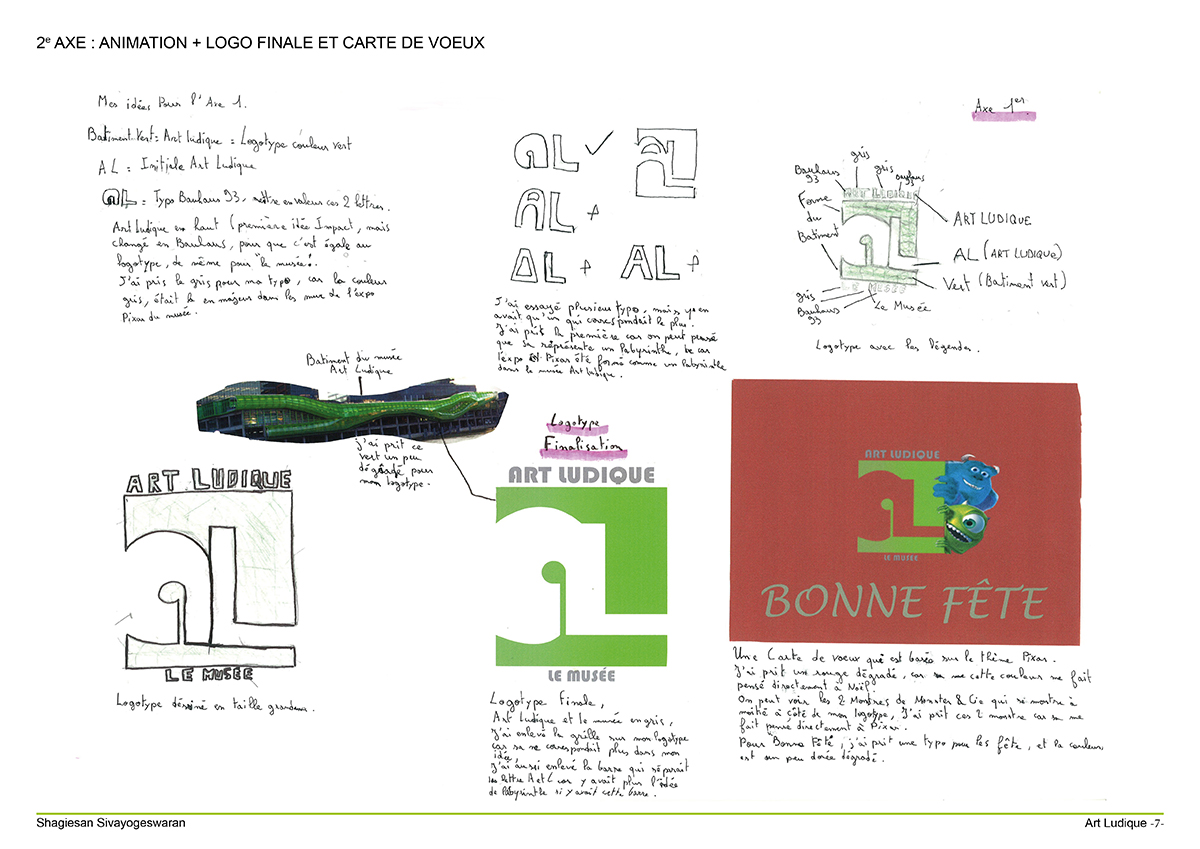 2e AXE : ANIMATION + LOGO FINALE ET CARTE DE VOEUX
Mes idées Pour l'Axe 1.
Batiment Vert = Art ludique = Logotype couleur vert
AL = Initiale Art Ludique
aL = Typo Bauhaus 93, mettre en valeur ces 2 lettres.
Art Ludique en haut (première idée Impact, mais
changé en Bauhaus, pour que c'est égale au
logotype, de même pour "le musée".
J'ai pris le gris pour ma typo, car la couleur
gris, était le en majeur dans les mur de l'expo
Pixar du musée.
aL
AL
AL
AL
aL
J'ai essayé plusieur typo, mais y en
avait qu'un qui correspondait le plus.
J'ai prit la première car on peut pensé
que sa représente un labyrinthe, car
l'expo Pixar été formé comme un labyrinthe
dans le musée Art ludique.
Axe 1er
Bauhaus
93
gris
gris
Bauhaus
93
Forme
du
Batiment
ART LUDIQUE
LE MUSÉE
ART LUDIQUE
AL (ART LUDIQUE)
Vert (Batiment vert)
gris
Bauhaus
93
Le Musée
Logotype avec les légendes.
Batiment du musée
Art Ludique
j'ai prit ce
vert un peu
dégradé pour
mon logotype.
ART LUDIQUE
aL
LE MUSÉE
Logotype déssiné en taille grandeur.
Logotype
Finalisation
ART LUDIQUE
aL
LE MUSÉE
Logotype Finale,
Art Ludique et le musée en gris,
J'ai enlevé la grille sur mon logotype
car sa ne correspondait plus dans mon
idée,
J'ai aussi enlevé la barre qui séparait
les lettre A et L car y avait plus l'idée
de labyrinthe si y avait cette barre.
ART LUDIQUE
aL
LE MUSÉE
BONNE FÊTE
Une Carte de voeux qui est basée sur le thème Pixar.
J'ai prit un rouge dégradé, car sa me cette couleur me fait
pensé directement à Noël.
On peut voir les 2 Monstres de Monster & Cie qui se montre à
moitié à côté de mon logotype, J'ai prit ces 2 monstre car sa me
fait pensé directement à Pixar.
Pour Bonne Fêté, j'ai prit une typo peu les fête, et la couleur
est un peu dorée dégradé.
Shagiesan Sivayogeswaran
Art Ludique -7-